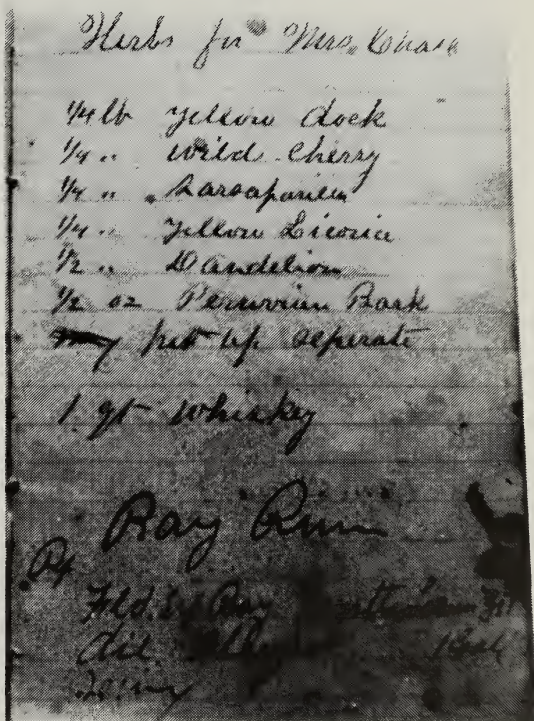 Herbs for Mrs. Chase
1/4 lb Yellow dock
1/4 " Wild Cherry
1/4 " Sarsaparilla
1/4 " Yellow Licoric
1/2 " Dandelion
1/2 oz Peruvian Bark
put up seperate
1 qt Whiskey
Bay Rum
Rx
Fld. Ext Bay